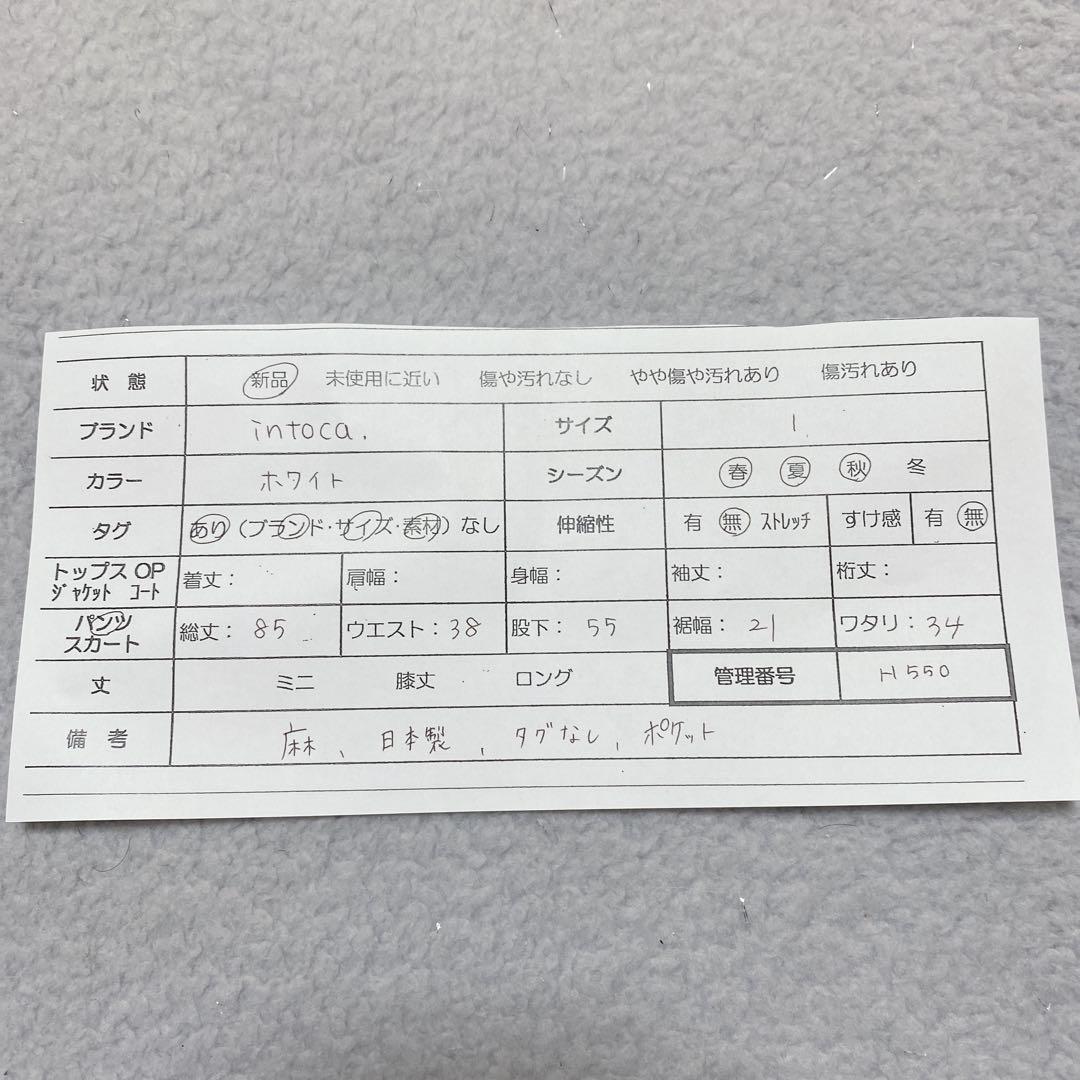 状態 新品 未使用に近い 傷や汚れなし やや傷や汚れあり 傷汚れあり
ブランド intoca. サイズ 1
カラー ホワイト シーズン 春 夏 秋 冬
タグ あり(ブランド・サイズ・素材)なし 伸縮性 有 無 ストレッチ すけ感 有 無
トップス OP 着丈: 肩幅: 身幅: 袖丈: 裄丈:
ジャケット コート
パンツ 総丈: 85 ウエスト: 38 股下: 55 裾幅: 21 ワタリ: 34
スカート
丈 ミニ 膝丈 ロング 管理番号 H550
備考 麻、日本製、タグなし、ポケット